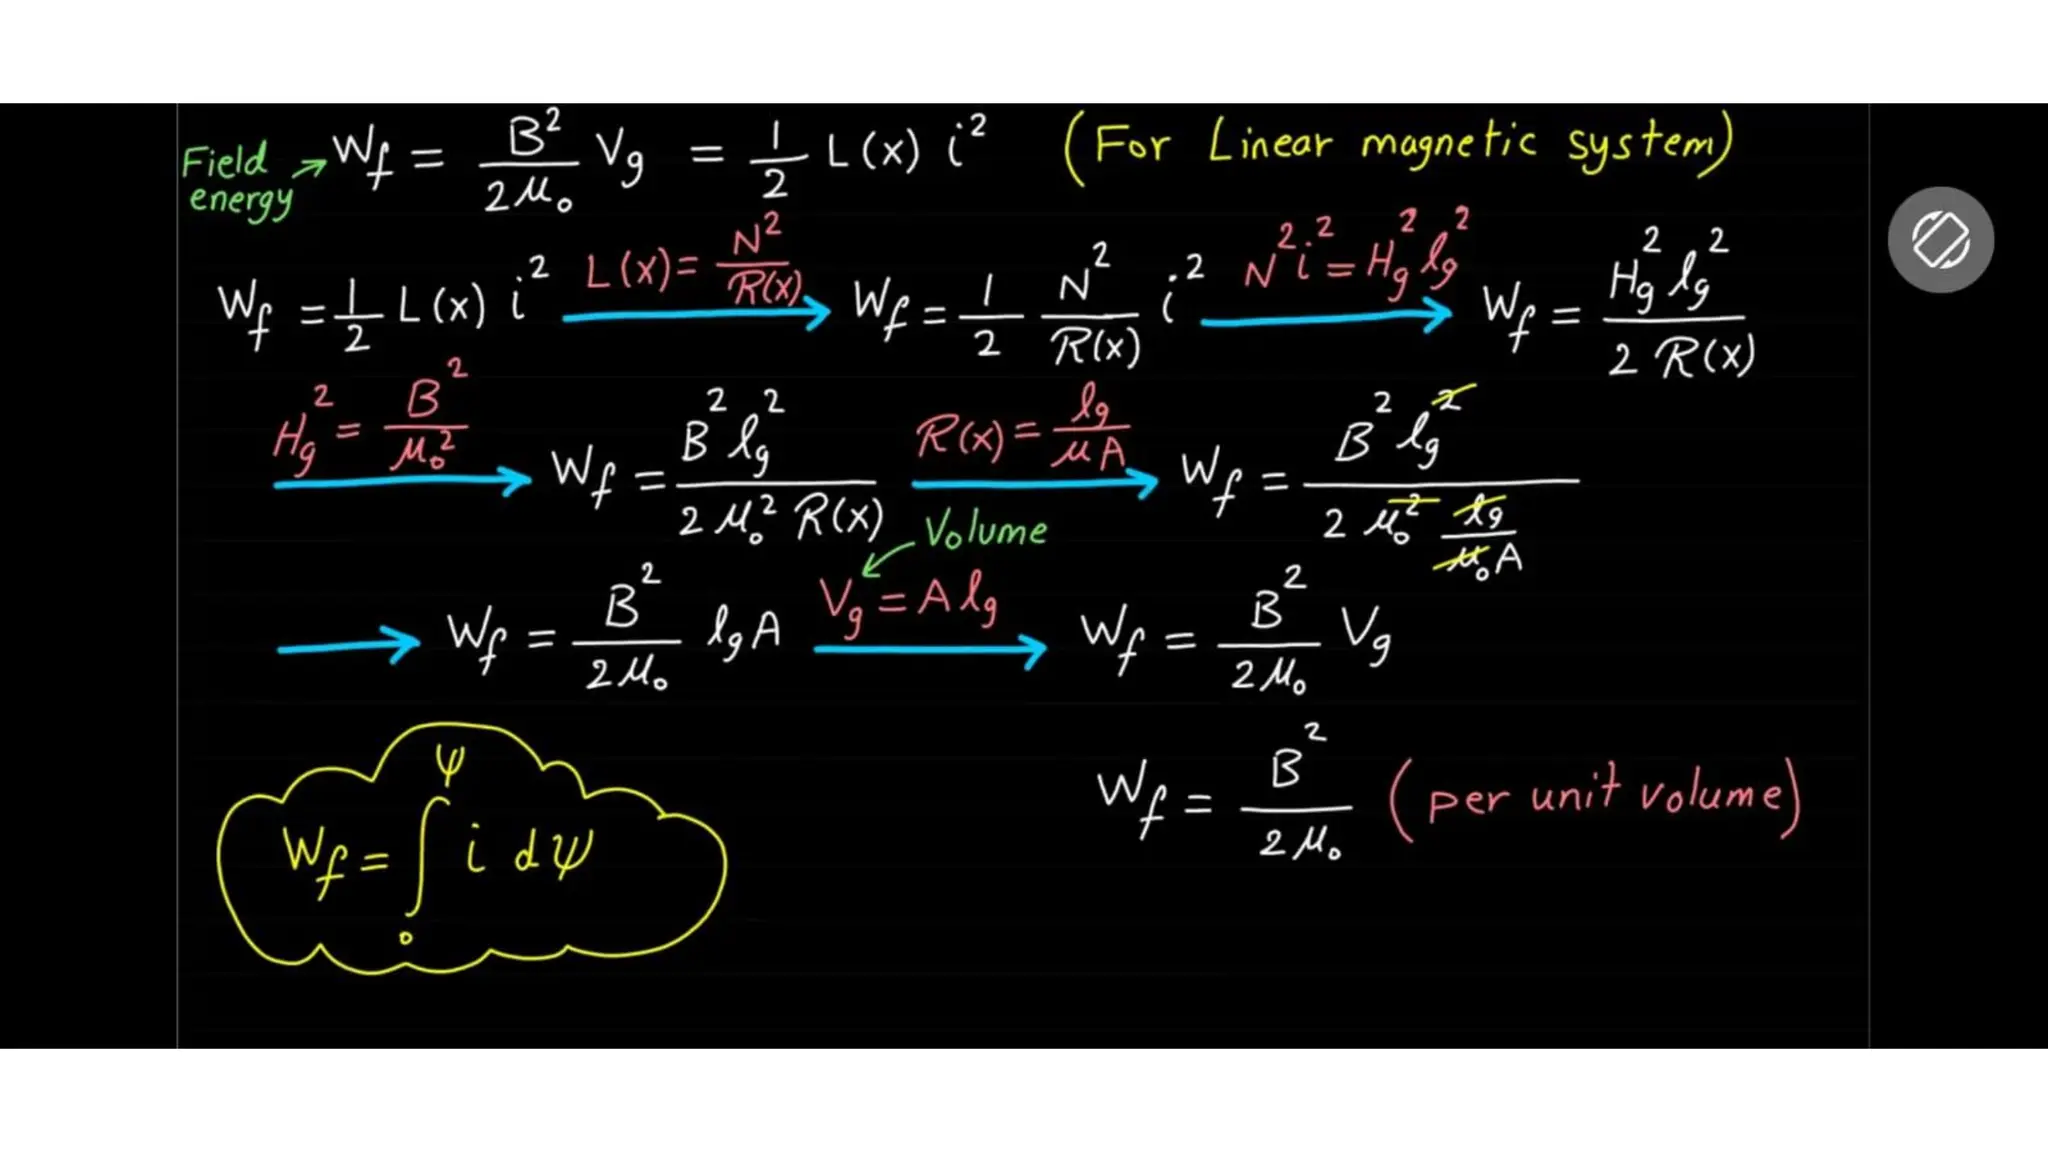 Field energy → Wf = B²/2μ₀ Vg = 1/2 L(x) i² (For Linear magnetic system)
Wf = 1/2 L(x) i² L(x) = N²/R(x) → Wf = 1/2 N²/R(x) i² N²i² = Hg² lg² → Wf = Hg² lg²/2 R(x)
Hg² = B²/μ₀² → Wf = B² lg²/2 μ₀² R(x) R(x) = lg/μA → Wf = B² lg²/2 μ₀² lg/μ₀A
Volume
→ Wf = B²/2μ₀ lg A Vg = A lg → Wf = B²/2μ₀ Vg
Wf = B²/2μ₀ (per unit volume)
Wf = ∫₀^ψ i dψ